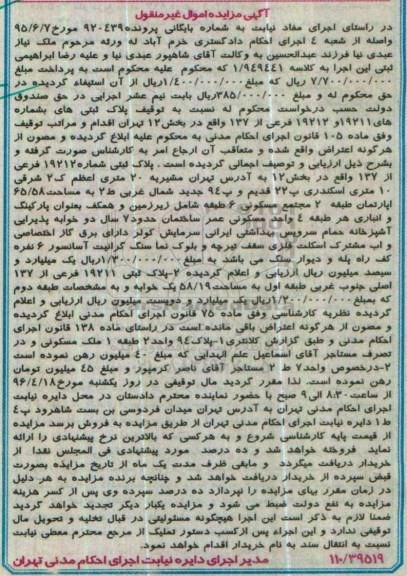 آگهی مزایده اموال غیرمنقول
در راستای اجرای مفاد نیابت به شماره بایگانی پرونده ۹۲۰۴۳۹ مورخ ۹۵/۶/۷
واصله از شعبه ۴ اجرای احکام دادگستری خرم آباد له ورثه مرحوم ملک نیاز
عبدی نیا فرزند عبدالحسین به وکالت آقای شاهپور عبدی نیا و علیه رضا ابراهیمی
ثبتی این اجرا به کلاسه ۱/۹۴۹۴۴۱ که محکوم علیه محکوم است به پرداخت مبلغ
۷/۷۰۰/۰۰۰/۰۰۰ ریال که مبلغ ۱/۴۰۰/۰۰۰/۰۰۰ ریال از آن استیفاء گردیده در
حق محکوم له و مبلغ ۳۸۵/۰۰۰/۰۰۰ ریال بابت نیم عشر اجرایی در حق صندوق
دولت حسب درخواست محکوم له نسبت به توقیف پلاک ثبتی های بشماره
های ۱۹۲۱۱ و ۱۹۲۱۲ فرعی از ۱۳۷ واقع در بخش ۱۲ تهران اقدام و مراتب توقیف
وفق ماده ۱۰۵ قانون اجرای احکام مدنی به محکوم علیه ابلاغ گردیده و مصون از
هرگونه اعتراض واقع شده و متعاقب آن ارجاع امر به کارشناس صورت گرفته و
بشرح ذیل ارزیابی و توصیف اجمالی گردیده است. پلاک ثبتی شماره ۱۹۲۱۲ فرعی
از ۱۳۷ واقع در بخش ۱۲ به آدرس تهران مشیریه ۲۰ متری اعظم ک ۲ شرقی
۱۰ متری اسکندری پ ۲۲ قدیم و پ ۹۴ جدید شمال غربی ط ۲ به مساحت ۶۵/۵۸
اپارتمان طبقه ۲ مجتمع مسکونی ۶ طبقه شامل زیرزمین و همکف بعنوان پارکینگ
و انباری هر طبقه ۲ واحد مسکونی عمر ساختمان حدود ۷ سال دو خوابه پذیرایی
آشپزخانه حمام سرویس بهداشتی ایرانی سرمایش کولر دارای برق گاز اختصاصی
و اب مشترک اسکلت فلزی سقف تیرچه و بلوک نما سنگ گرانیت آسانسور ۶ نفره
کف راه پله و دیوار سنگ می باشد به مبلغ ۱/۳۰۰/۰۰۰/۰۰۰ ریال یک میلیارد و
سیصد میلیون ریال ارزیابی و اعلام گردیده ۲-پلاک ثبتی ۱۹۲۱۱ فرعی از ۱۳۷
اصلی جنوب غربی طبقه اول به مساحت ۵۸/۱۹ یک خوابه و به مشخصات طبقه دوم
که بمبلغ ۱/۲۰۰/۰۰۰/۰۰۰ ریال یک میلیارد و دویست میلیون ریال ارزیابی و اعلام
گردیده نظریه کارشناسی وفق ماده ۷۵ قانون اجرای احکام مدنی ابلاغ گردیده
و مصون از هرگونه اعتراض باقی مانده است در راستای ماده ۱۳۸ قانون اجرای
احکام مدنی و طبق گزارش کلانتری ۱-پلاک ۹۴ واحد ۲ طبقه ۱ ملک مسکونی و در
تصرف مستاجر آقای اسماعیل علم الهدایی که مبلغ ۴۰ میلیون رهن نموده است
۲-درخصوص واحد ۷ ط ۲ مستاجر آقای ناصر کرمپور و مبلغ ۴۵ میلیون تومان
رهن نموده است. لذا مقرر گردید مال توقیفی در روز یکشنبه مورخ ۹۶/۴/۱۸
از ساعت ۸:۳۰ الی ۹ صبح با حضور نماینده محترم دادستان در محل دایره نیابت
اجرای احکام مدنی به آدرس تهران میدان فردوسی بن بست شاهرود پ ۴
ط ۱ دایره نیابت اجرای احکام مدنی تهران از طریق مزایده به فروش برسد مزایده
از قیمت پایه کارشناسی شروع و به هرکسی که بالاترین نرخ پیشنهادی را ارائه
نماید فروخته خواهد شد و ده درصد مورد پیشنهادی فی المجلس نقدا از
خریدار دریافت میگردد و مابقی ظرف مدت یک ماه از تاریخ مزایده بصورت
قبض سپرده از خریدار دریافت خواهد شد و چنانچه برنده مزایده به هر دلیل
در زمان مقرر بهای مزایده را نپردازد ده درصد سپرده وی پس از کسر هزینه
مزایده به نفع دولت ضبط می شود و مزایده یکبار دیگر تجدید خواهد گردید
ضمنا لازم به ذکر است این اجرا هیچگونه مسئولیتی در قبال تخلیه و تحویل مال
توقیفی ندارد و این اجراء پس ازکسب دستور تملیک از مرجع محترم معطی نیابت
نسبت به انتقال سند به نام خریدار اقدام خواهد نمود.
۱۱۰/۳۹۵۱۹ مدیر اجرای دایره نیابت اجرای احکام مدنی تهران